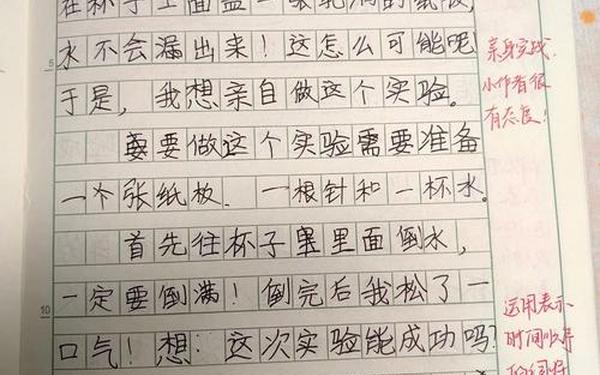 在杯子上面盖一张孔洞的纸板,
水不会漏出来!这怎么可能呢
于是,我想亲自做这个实验。
要做这个实验需要准备
一个张纸板.一根针和一杯水。
首先往杯子里面倒水,
一定要倒满!倒完后我松了一
口气!想:这次实验能成功吗?
5
10
亲身实战.
小作者很
有态度!
运用表示
时间顺序
的词好